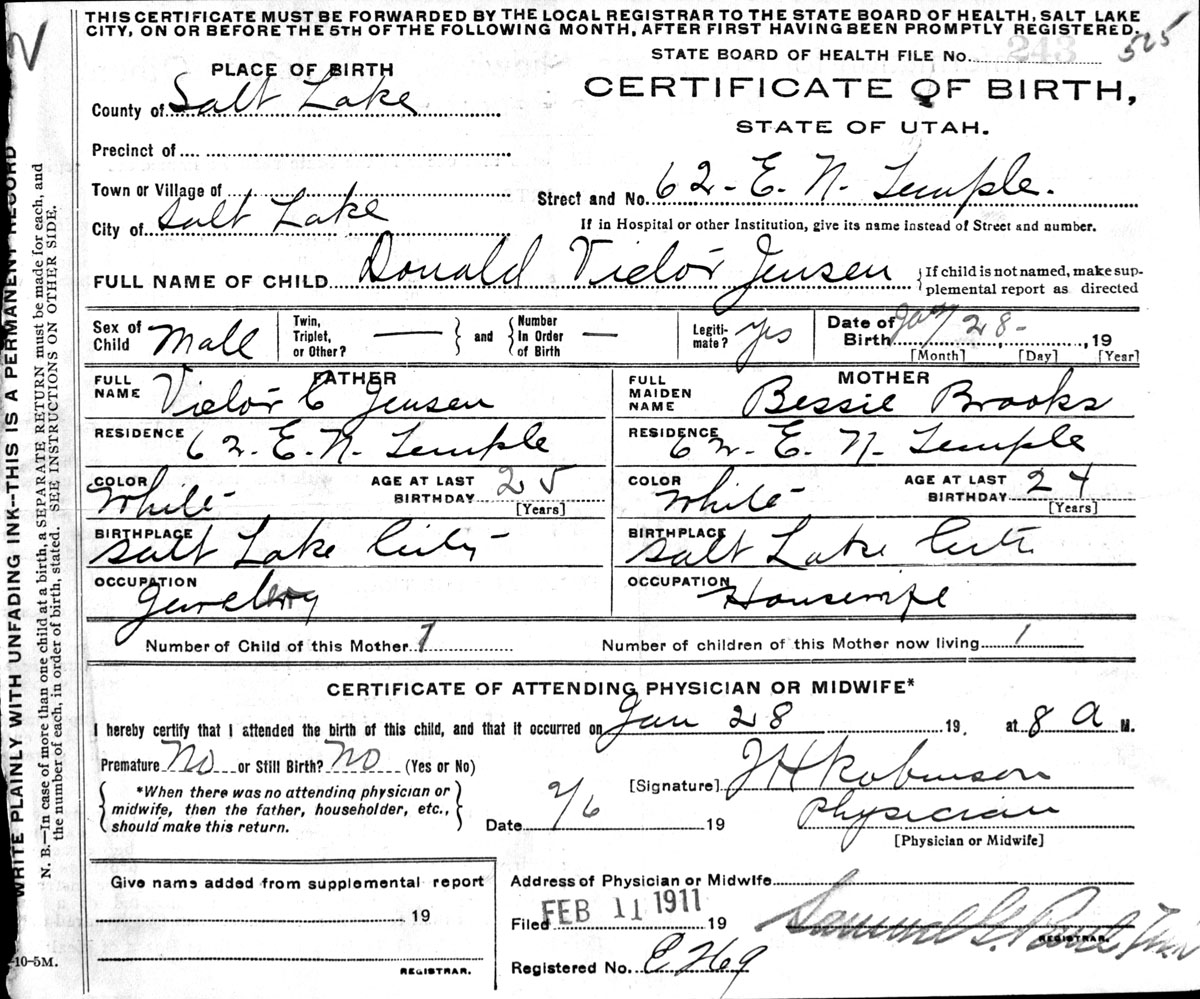 THIS CERTIFICATE MUST BE FORWARDED BY THE LOCAL REGISTRAR TO THE STATE BOARD OF HEALTH, SALT LAKE
CITY, ON OR BEFORE THE 5TH OF THE FOLLOWING MONTH, AFTER FIRST HAVING BEEN PROMPTLY REGISTERED.
STATE BOARD OF HEALTH FILE No. 243 525
PLACE OF BIRTH
CERTIFICATE OF BIRTH,
STATE OF UTAH.
County of Salt Lake
Precinct of
Town or Village of
Street and No. 62- E. N. Temple.
City of Salt Lake
If in Hospital or other Institution, give its name instead of Street and number.
FULL NAME OF CHILD Donald Victor Jensen
{If child is not named, make sup-
plemental report as directed
Sex of Child Male
Twin, Triplet, or Other? —
and
Number In Order of Birth —
Legiti-mate? Yes
Date of Birth Jan 28- , 19
[Month] [Day] [Year]
FATHER
FULL NAME Victor C Jensen
MOTHER
FULL MAIDEN NAME Bessie Brooks
RESIDENCE 62. E. N. Temple
RESIDENCE 62 E. N. Temple
COLOR White-
AGE AT LAST BIRTHDAY 25 [Years]
COLOR White-
AGE AT LAST BIRTHDAY 24 [Years]
BIRTHPLACE Salt Lake City
BIRTHPLACE Salt Lake City
OCCUPATION
OCCUPATION Housewife
Number of Child of this Mother 1
Number of children of this Mother now living 1
CERTIFICATE OF ATTENDING PHYSICIAN OR MIDWIFE*
I hereby certify that I attended the birth of this child, and that it occurred on Jan 28 19 , at 8 A M.
Premature No or Still Birth? No (Yes or No)
*When there was no attending physician or
midwife, then the father, householder, etc.,
should make this return.
[Signature] J H Robinson
Date 2/6 19
Physician
[Physician or Midwife]
Give name added from supplemental report
19
REGISTRAR.
Address of Physician or Midwife
Filed FEB 11 1911 19
Samuel G. Paul
REGISTRAR.
Registered No. E 269
-10-5M.
WRITE PLAINLY WITH UNFADING INK—THIS IS A PERMANENT RECORD
N. B.—In case of more than one child at a birth, a SEPARATE RETURN must be made for each, and
the number of each, in order of birth, stated. SEE INSTRUCTIONS ON OTHER SIDE.